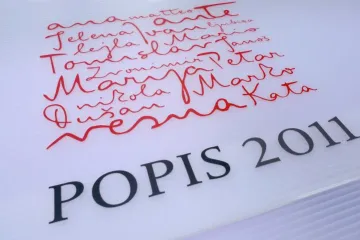 ana matteo
Jelena Ivan ante
lejla Mario ljubica
Tomislav Janoš
Zvonimir Petar
Marija
nikola Marko
Dušan Kata
vesna
POPIS 2011